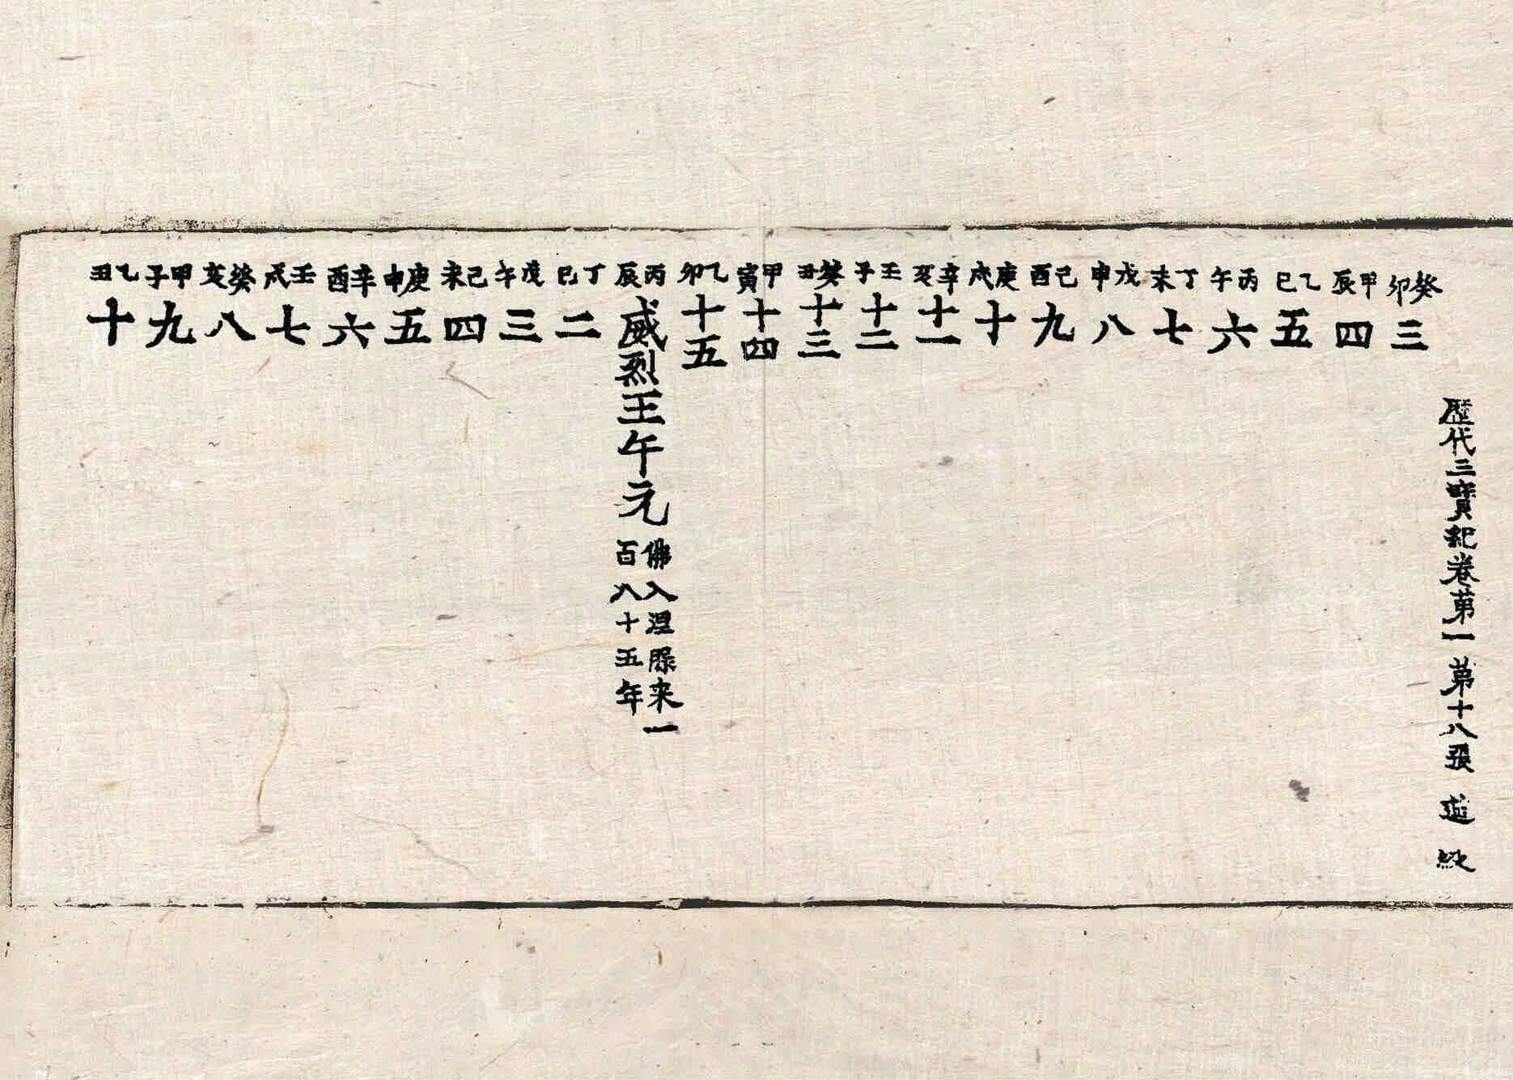 歷代三寶紀卷第一 第十八張 迲 㱾
癸卯 三
甲辰 四
乙巳 五
丙午 六
丁未 七
戊申 八
己酉 九
庚戌 十
辛亥 十一
壬子 十二
癸丑 十三
甲寅 十四
乙卯 十五
丙辰 威烈王午元 佛入涅槃來一
百八十五年
丁巳 二
戊午 三
己未 四
庚申 五
辛酉 六
壬戌 七
癸亥 八
甲子 九
乙丑 十